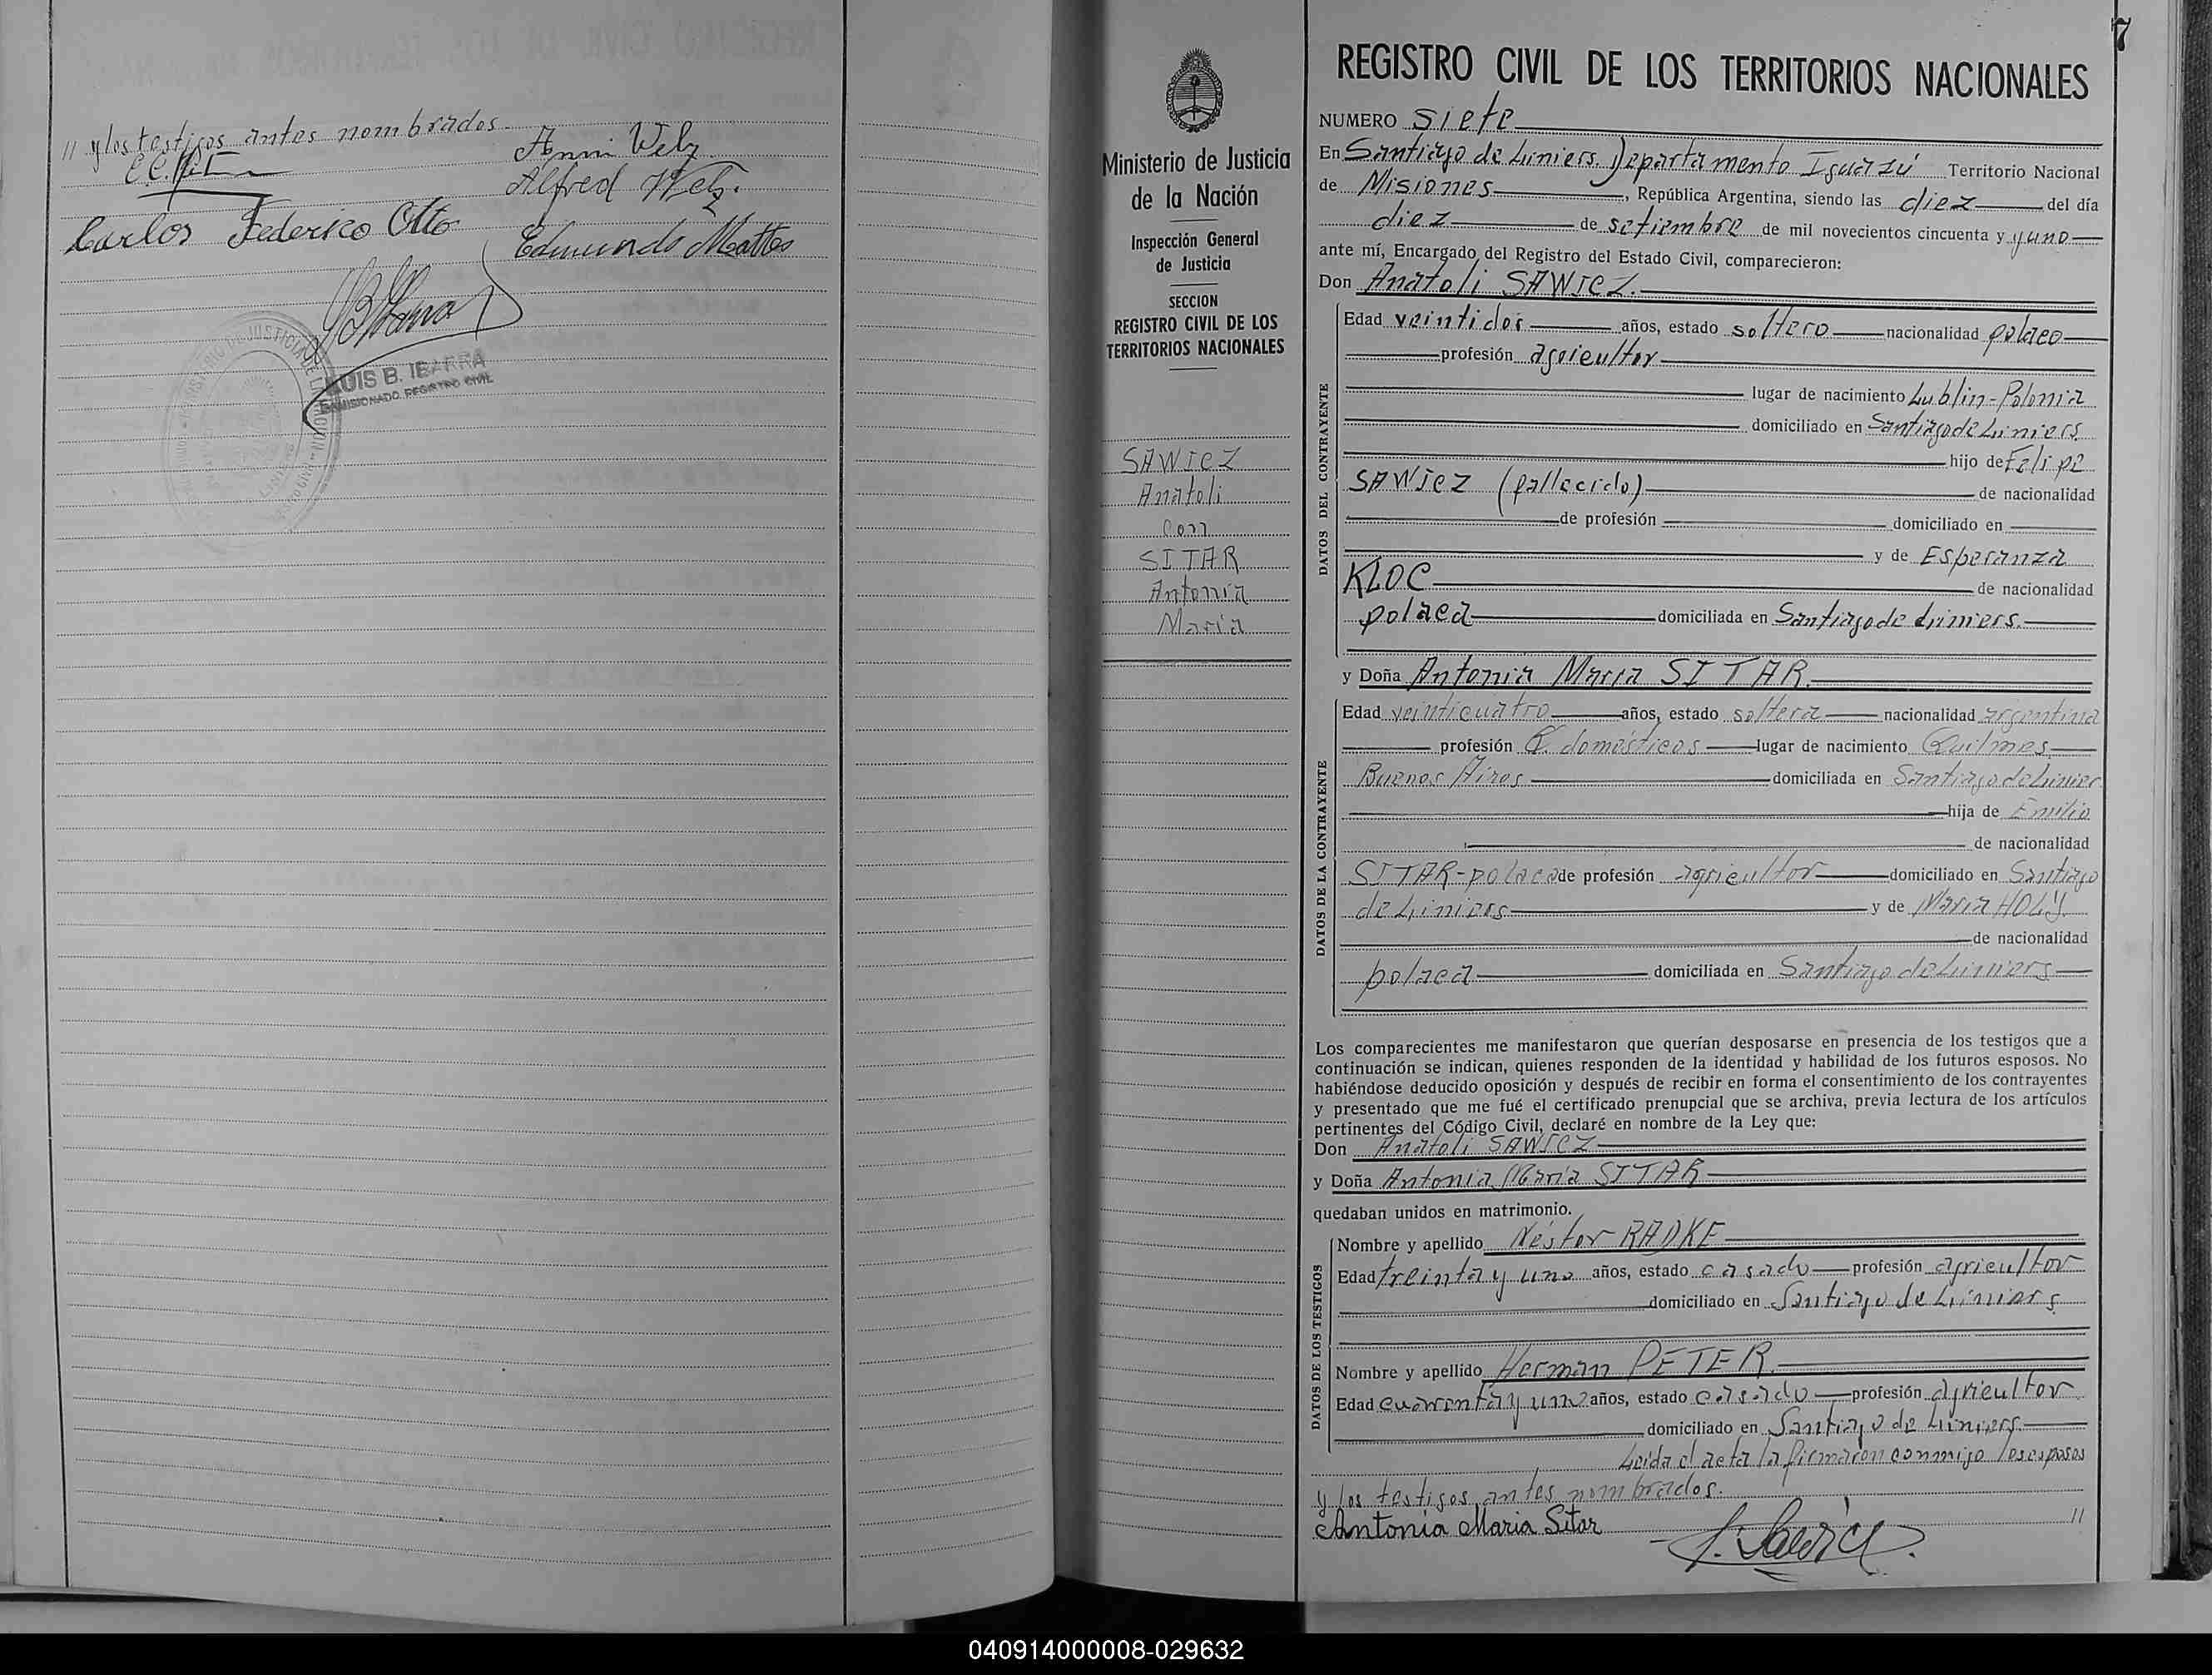 // y los testigos antes nombrados.
Anni Welz
Alfred Welz.
Carlos Federico Otto
Edmundo Mattos
LUIS B. IBARRA
COMISIONADO REGISTRO CIVIL
7
Ministerio de Justicia
de la Nación
Inspección General
de Justicia
SECCION
REGISTRO CIVIL DE LOS
TERRITORIOS NACIONALES
SAWICZ
Anatoli
con
SITAR
Antonia
María
REGISTRO CIVIL DE LOS TERRITORIOS NACIONALES
NUMERO siete
En Santiago de Liniers. Departamento Iguazú Territorio Nacional
de Misiones, República Argentina, siendo las diez del día
diez de setiembre de mil novecientos cincuenta y y uno
ante mí, Encargado del Registro del Estado Civil, comparecieron:
Don Anatoli SAWICZ.
DATOS DEL CONTRAYENTE
Edad veintidos años, estado soltero nacionalidad polaco
profesión agricultor
lugar de nacimiento Lublin-Polonia
domiciliado en Santiago de Liniers.
hijo de Felipe
SAWICZ (fallecido) de nacionalidad
de profesión domiciliado en
y de Esperanza
KLOC de nacionalidad
polaca domiciliada en Santiago de Liniers.
y Doña Antonia María SITAR.
DATOS DE LA CONTRAYENTE
Edad veinticuatro años, estado soltera nacionalidad argentina
profesión Q. domésticos lugar de nacimiento Quilmes
Buenos Aires domiciliada en Santiago de Liniers
hija de Emilio
de nacionalidad
SITAR-polaco de profesión agricultor domiciliado en Santiago
de Liniers y de María HOLY.
de nacionalidad
polaca domiciliada en Santiago de Liniers
Los comparecientes me manifestaron que querían desposarse en presencia de los testigos que a
continuación se indican, quienes responden de la identidad y habilidad de los futuros esposos. No
habiéndose deducido oposición y después de recibir en forma el consentimiento de los contrayentes
y presentado que me fué el certificado prenupcial que se archiva, previa lectura de los artículos
pertinentes del Código Civil, declaré en nombre de la Ley que:
Don Anatoli SAWICZ
y Doña Antonia María SITAR
quedaban unidos en matrimonio.
DATOS DE LOS TESTIGOS
Nombre y apellido Néstor RADKE
Edad treinta y uno años, estado casado profesión agricultor
domiciliado en Santiago de Liniers
Nombre y apellido Herman PETER.
Edad cuarenta y uno años, estado casado profesión agricultor
domiciliado en Santiago de Liniers.
Leída el acta la firmaron conmigo los esposos
y los testigos antes nombrados.
Antonia Maria Sitar //
040914000008-029632